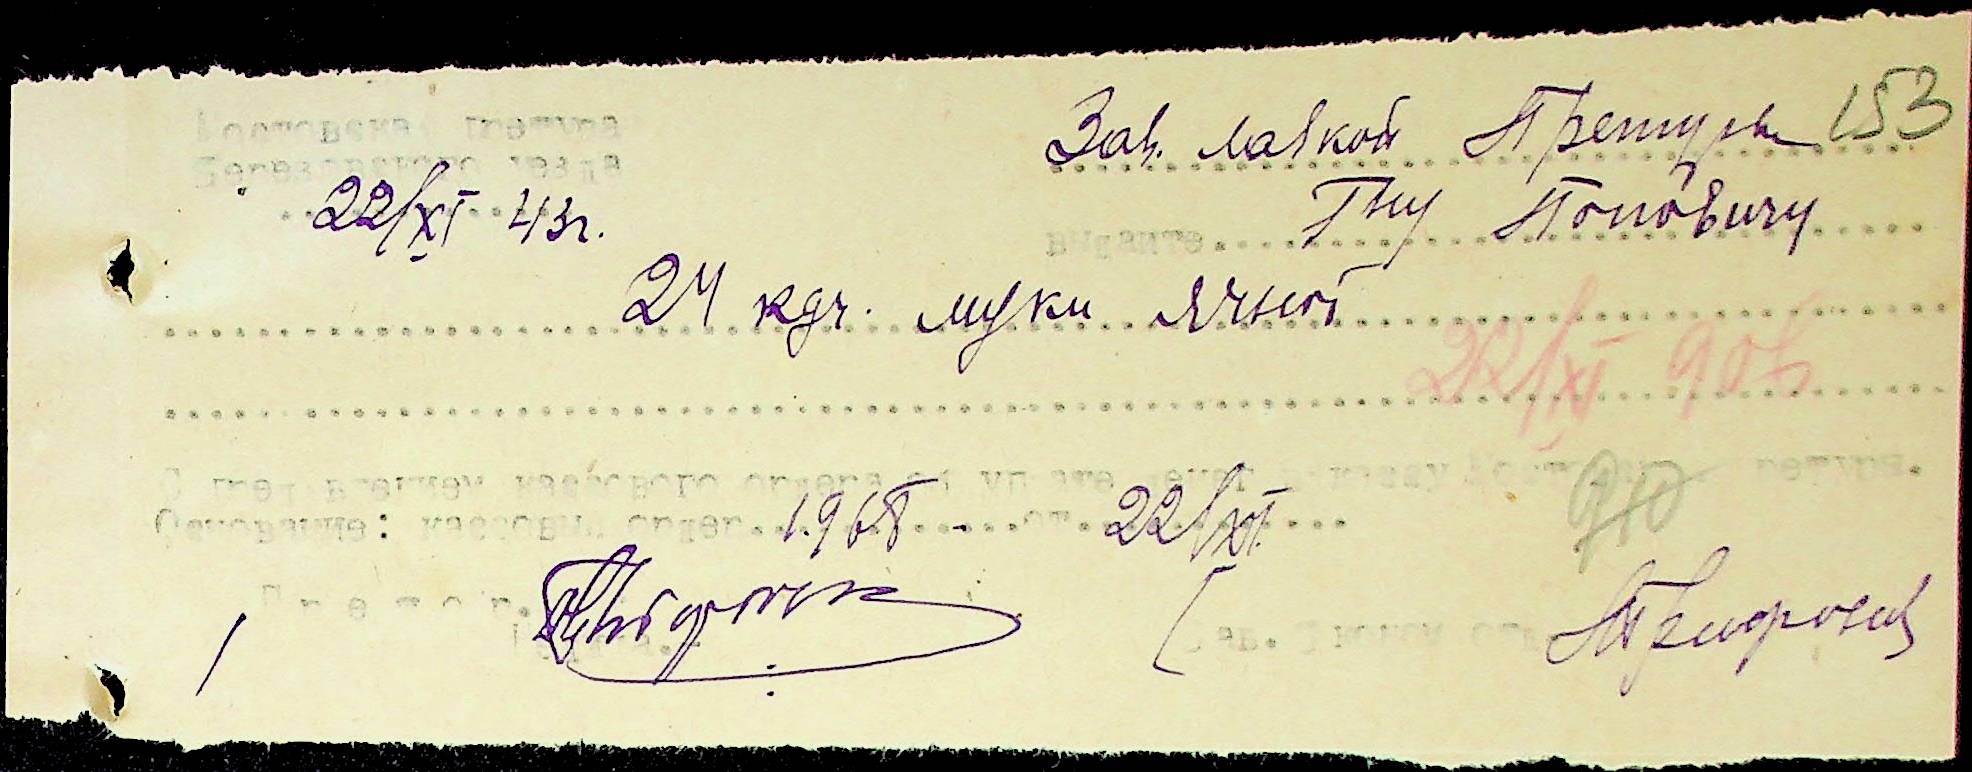 Мостовская претура
Березовского уезда
22/XI 43г.
153
Зав. лавкой Претуры
выдайте Гну Поповичу
24 клгр. муки ячной
22/XI 906
С пред'явлением кассового ордера об уплате денег в кассу Мостовской претуры.
Основание: кассовый ордер 1968 - от 22/XI.
910
Претор.
Зав. Эконом